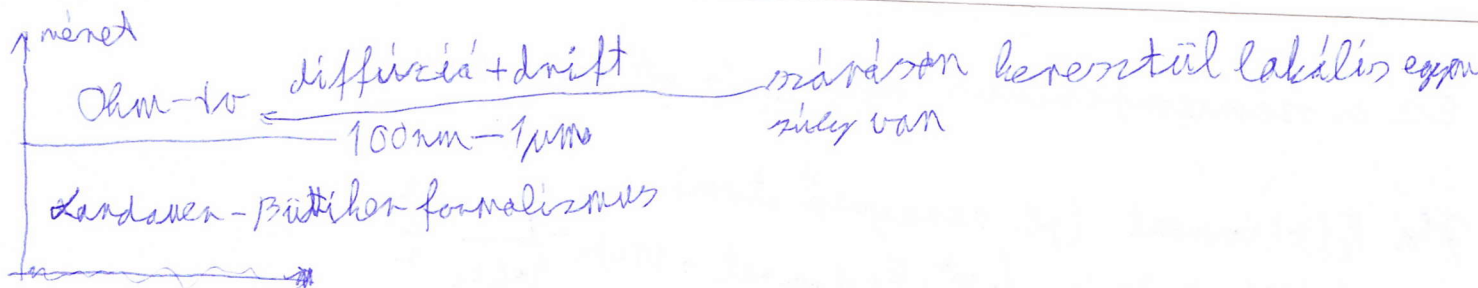 méret
Ohm-tv diffúzió + drift szóráson keresztül lokális egyen
100nm – 1μm súly van
Landauer-Büttiker formalizmus